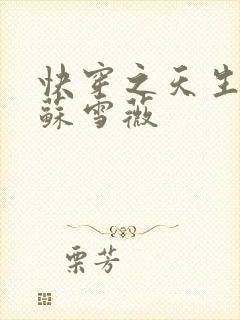 快穿之天生
蘇雪薇
栗芳